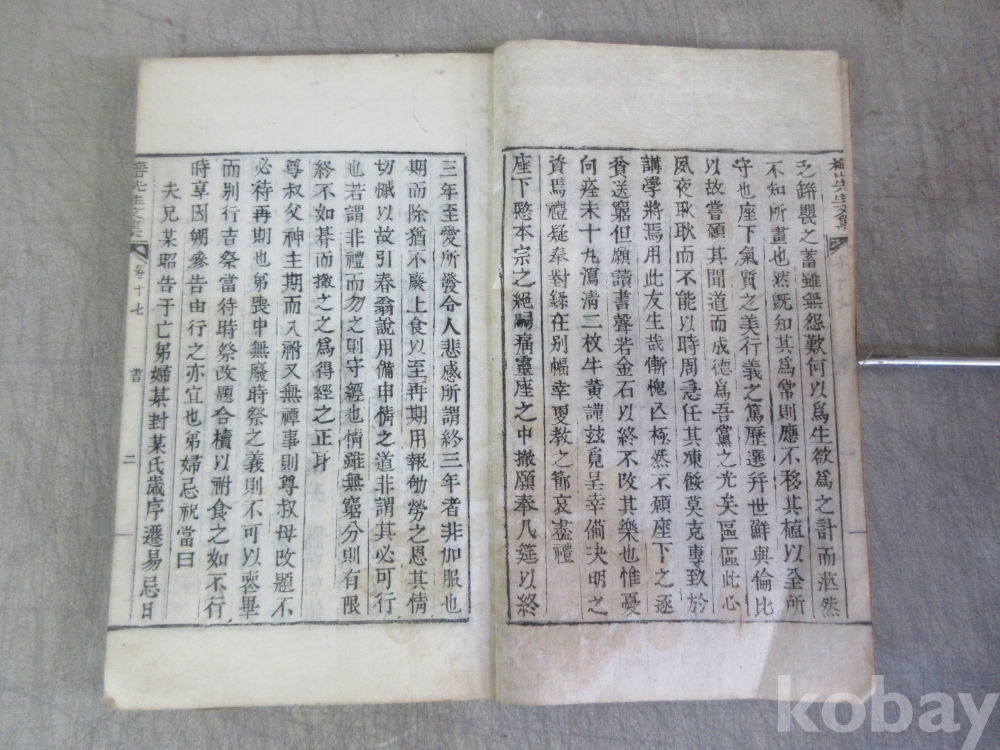 梅山先生文集
之缾罌之蓄雖無怨歎何以爲生欲爲之計而茫然
不知所畫也然旣知其爲常則應不移其植以全所
守也座下氣質之美行義之篤歷選幷世鮮與倫比
以故嘗願其聞道而成德爲吾黨之光矣區區此心
夙夜耿耿而不能以時周急任其凍餒莫克專致於
講學將焉用此友生哉慚愧亡極然不願座下之逐
貧送窮但願讀書聲若金石以終不改其樂也惟憂
何痊未十九瀉淸二枚牛黃謹玆覓呈幸備決明之
資焉禮疑奉對錄在別幅幸更敎之節哀盡禮
座下愍本宗之絶嗣痛靈座之中撤願奉几筵以終
三年至愛所發令人悲感所謂終三年者非加服也
期而除猶不廢上食以至再期用報劬勞之恩其情
切慽以故引春翁說用備申情之道非謂其必可行
也若謂非禮而勿之則守經也情雖無窮分則有限
終不如朞而撤之之爲得經之正耳
尊叔父神主期而入祔又無禫事則尊叔母改題不
必待再期也弟喪中無廢時祭之義則不可以喪畢
而別行吉祭當待時祭改題合櫝以祔食之如不行
時享因朔參告由行之亦宜也弟婦忌祝當曰
夫兄某昭告于亡弟婦某封某氏歲序遷易忌日
先生文集
卷十七
書
二
kobay